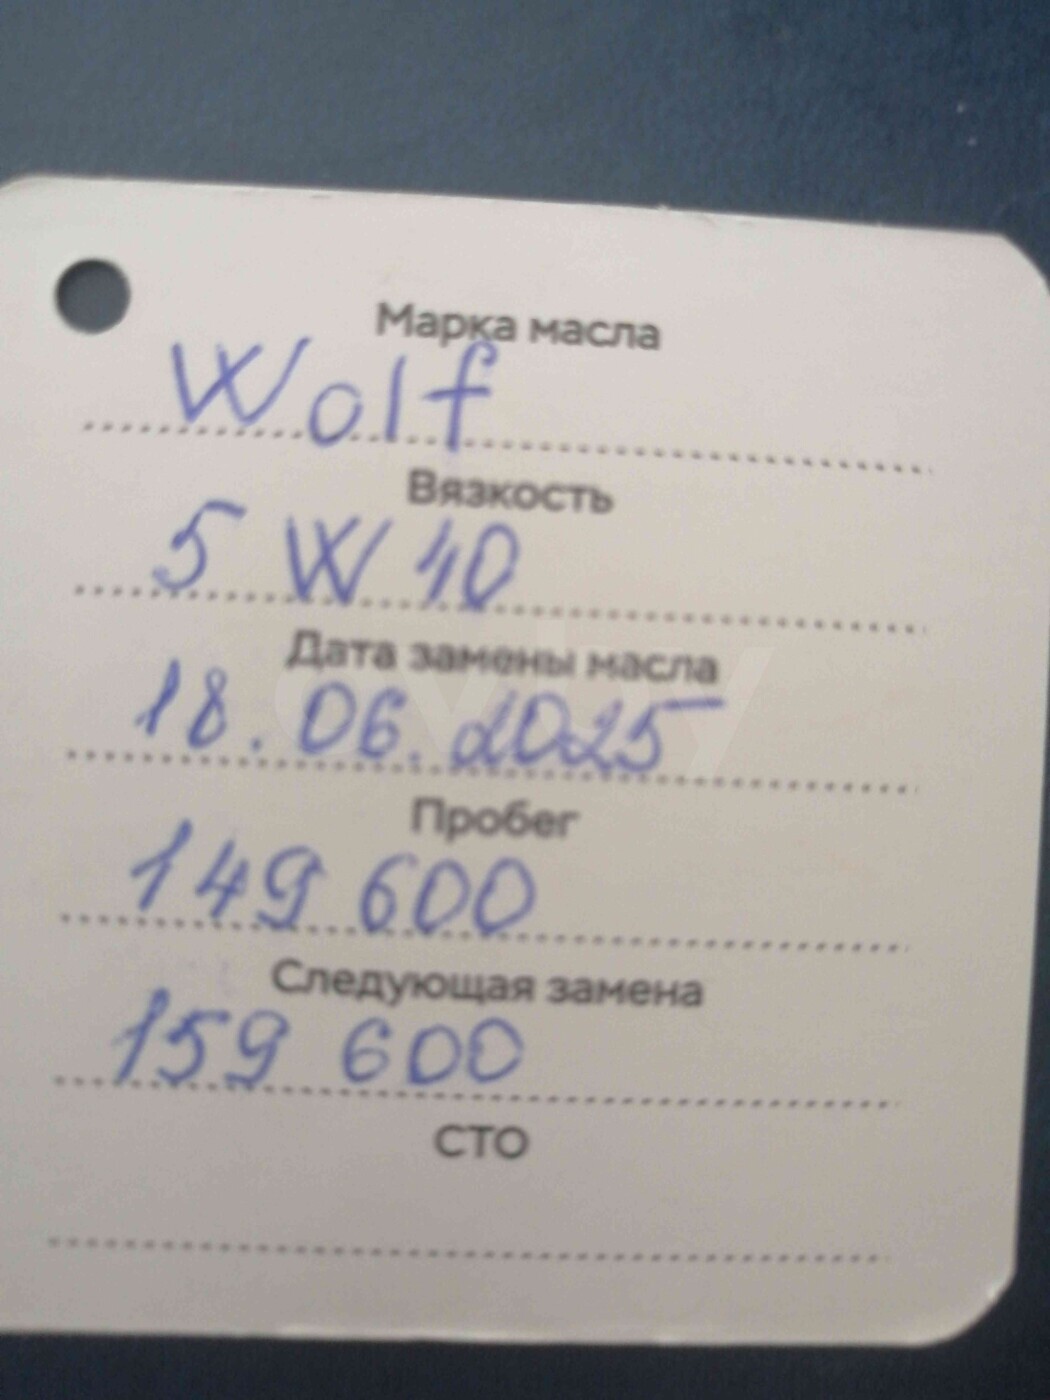 Марка масла
Wolf
Вязкость
5 W 40
Дата замены масла
18.06.2025
Пробег
149 600
Следующая замена
159 600
СТО